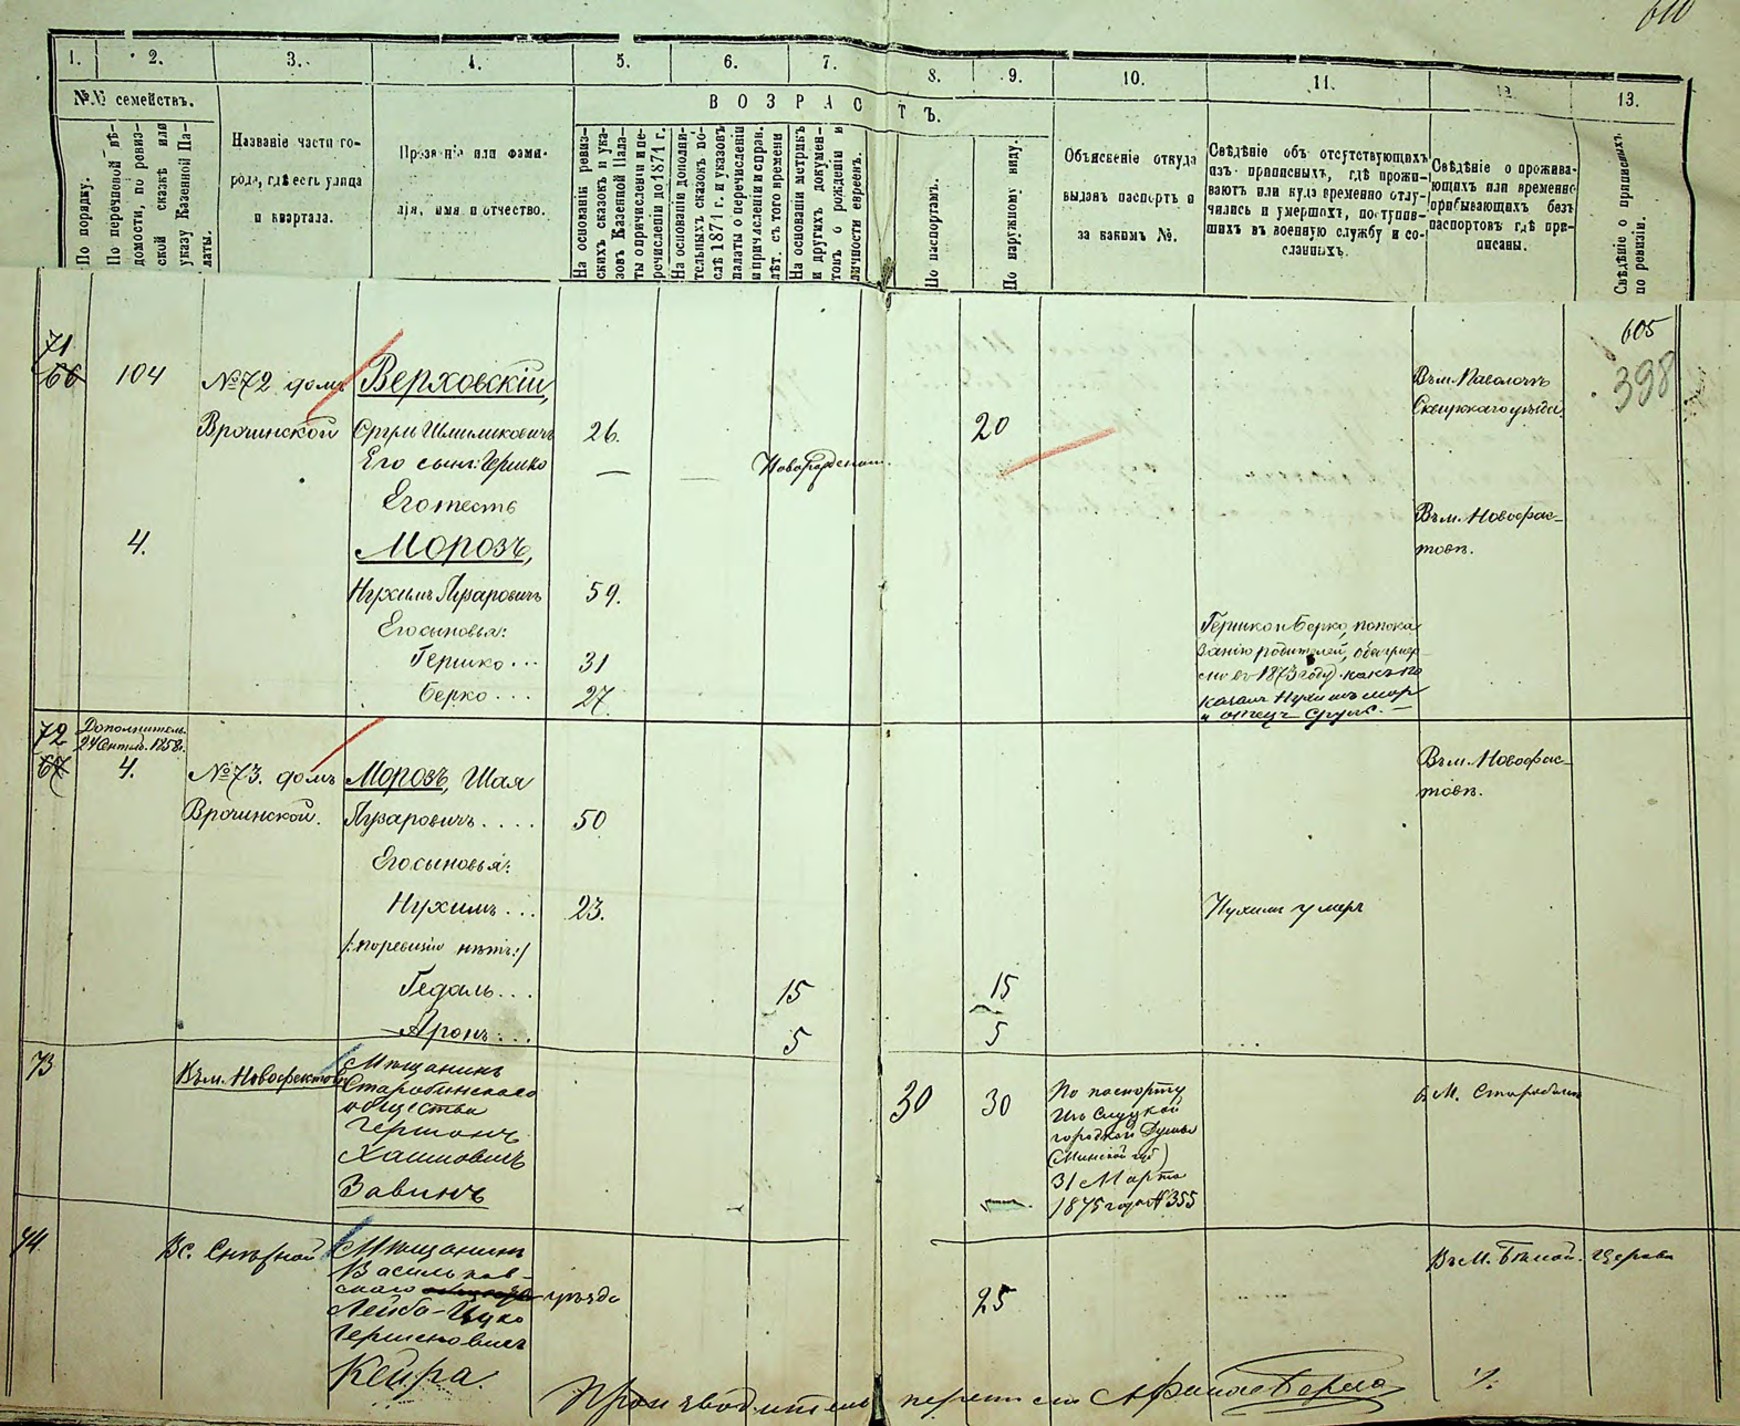 610
1. 2. 3. 4. 5. 6. 7. 8. 9. 10. 11. 12. 13.
№№ семействъ.
ВОЗРАСТЪ.
По порядку.
По перечневой вѣ-
домости, по ревиз-
ской сказкѣ или
указу Казенной Па-
латы.
Названіе части го-
рода, гдѣ есть улица
и кварталъ.
Прозваніе или фами-
лія, имя и отчество.
На основаніи ревиз-
скихъ сказокъ и ука-
зовъ Казенной Пала-
ты о причисленіи и пе-
речисленіи до 1871 г.
На основаніи дополни-
тельныхъ сказокъ по-
слѣ 1871 г. и указовъ
палаты о перечисленіи
и причисленіи и исправ.
лѣт. съ того времени
На основаніи метрикъ
и другихъ докумен-
товъ о рожденіи и
личности евреевъ.
По паспортамъ.
По наружному виду.
Объясненіе откуда
выданъ паспортъ и
за какимъ №.
Свѣдѣніе объ отсутствующихъ
изъ приписныхъ, гдѣ прожи-
ваютъ или куда временно отлу-
чились и умершихъ, поступив-
шихъ въ военную службу и со-
сланныхъ.
Свѣдѣніе о прожива-
ющихъ или временно
прибывающихъ безъ
паспортовъ гдѣ при-
писаны.
Свѣдѣніе о приписныхъ
по ревизіи.
71
66 104 №72 домъ Верховскій,
Врочинской
Сруль Шлимиковичъ 26. 20
Его сынъ: Гершко — Новорожденный.
Въ м. Паволочь
Сквирскаго уѣзда.
605
398
Его тесть
4. Морозъ,
Въ м. Новофас-
товѣ.
Нухимъ Лузаровичъ 59.
Его сыновья:
Гершко... 31
Берко... 27.
Гершко и Берко, по пока
занію родителей,
въ 1873 году какъ по
казалъ Нухимъ
и отецъ Сруль. —
72
67
Дополнитель.
1858г.
4. №73. домъ Морозъ, Шая
Врочинской. Лузаровичъ.... 50
Въ м. Новофас-
товѣ.
Его сыновья:
Нухимъ... 23. Нухимъ умеръ
/: по ревизіи нѣтъ:/
Гедаль... 15 15
Аронъ... 5 5
73 Въ м. Новофастовѣ
Мѣщанинъ
Старобинскаго
общества
Гершонъ
Хаимовичъ
Завинъ
30 30
По паспорту
Изъ Слуцкой
городской Думы
(Минской губ)
31 Марта
1875 года №355
в М. Старобинѣ
74. Въ с. Снѣжной
Мѣщанинъ
Васильков-
скаго уѣзда
Лейба-Ицко
Гершковичъ
Кейра.
25
Въ М. Бѣлой-Церкви
Производитель переписи